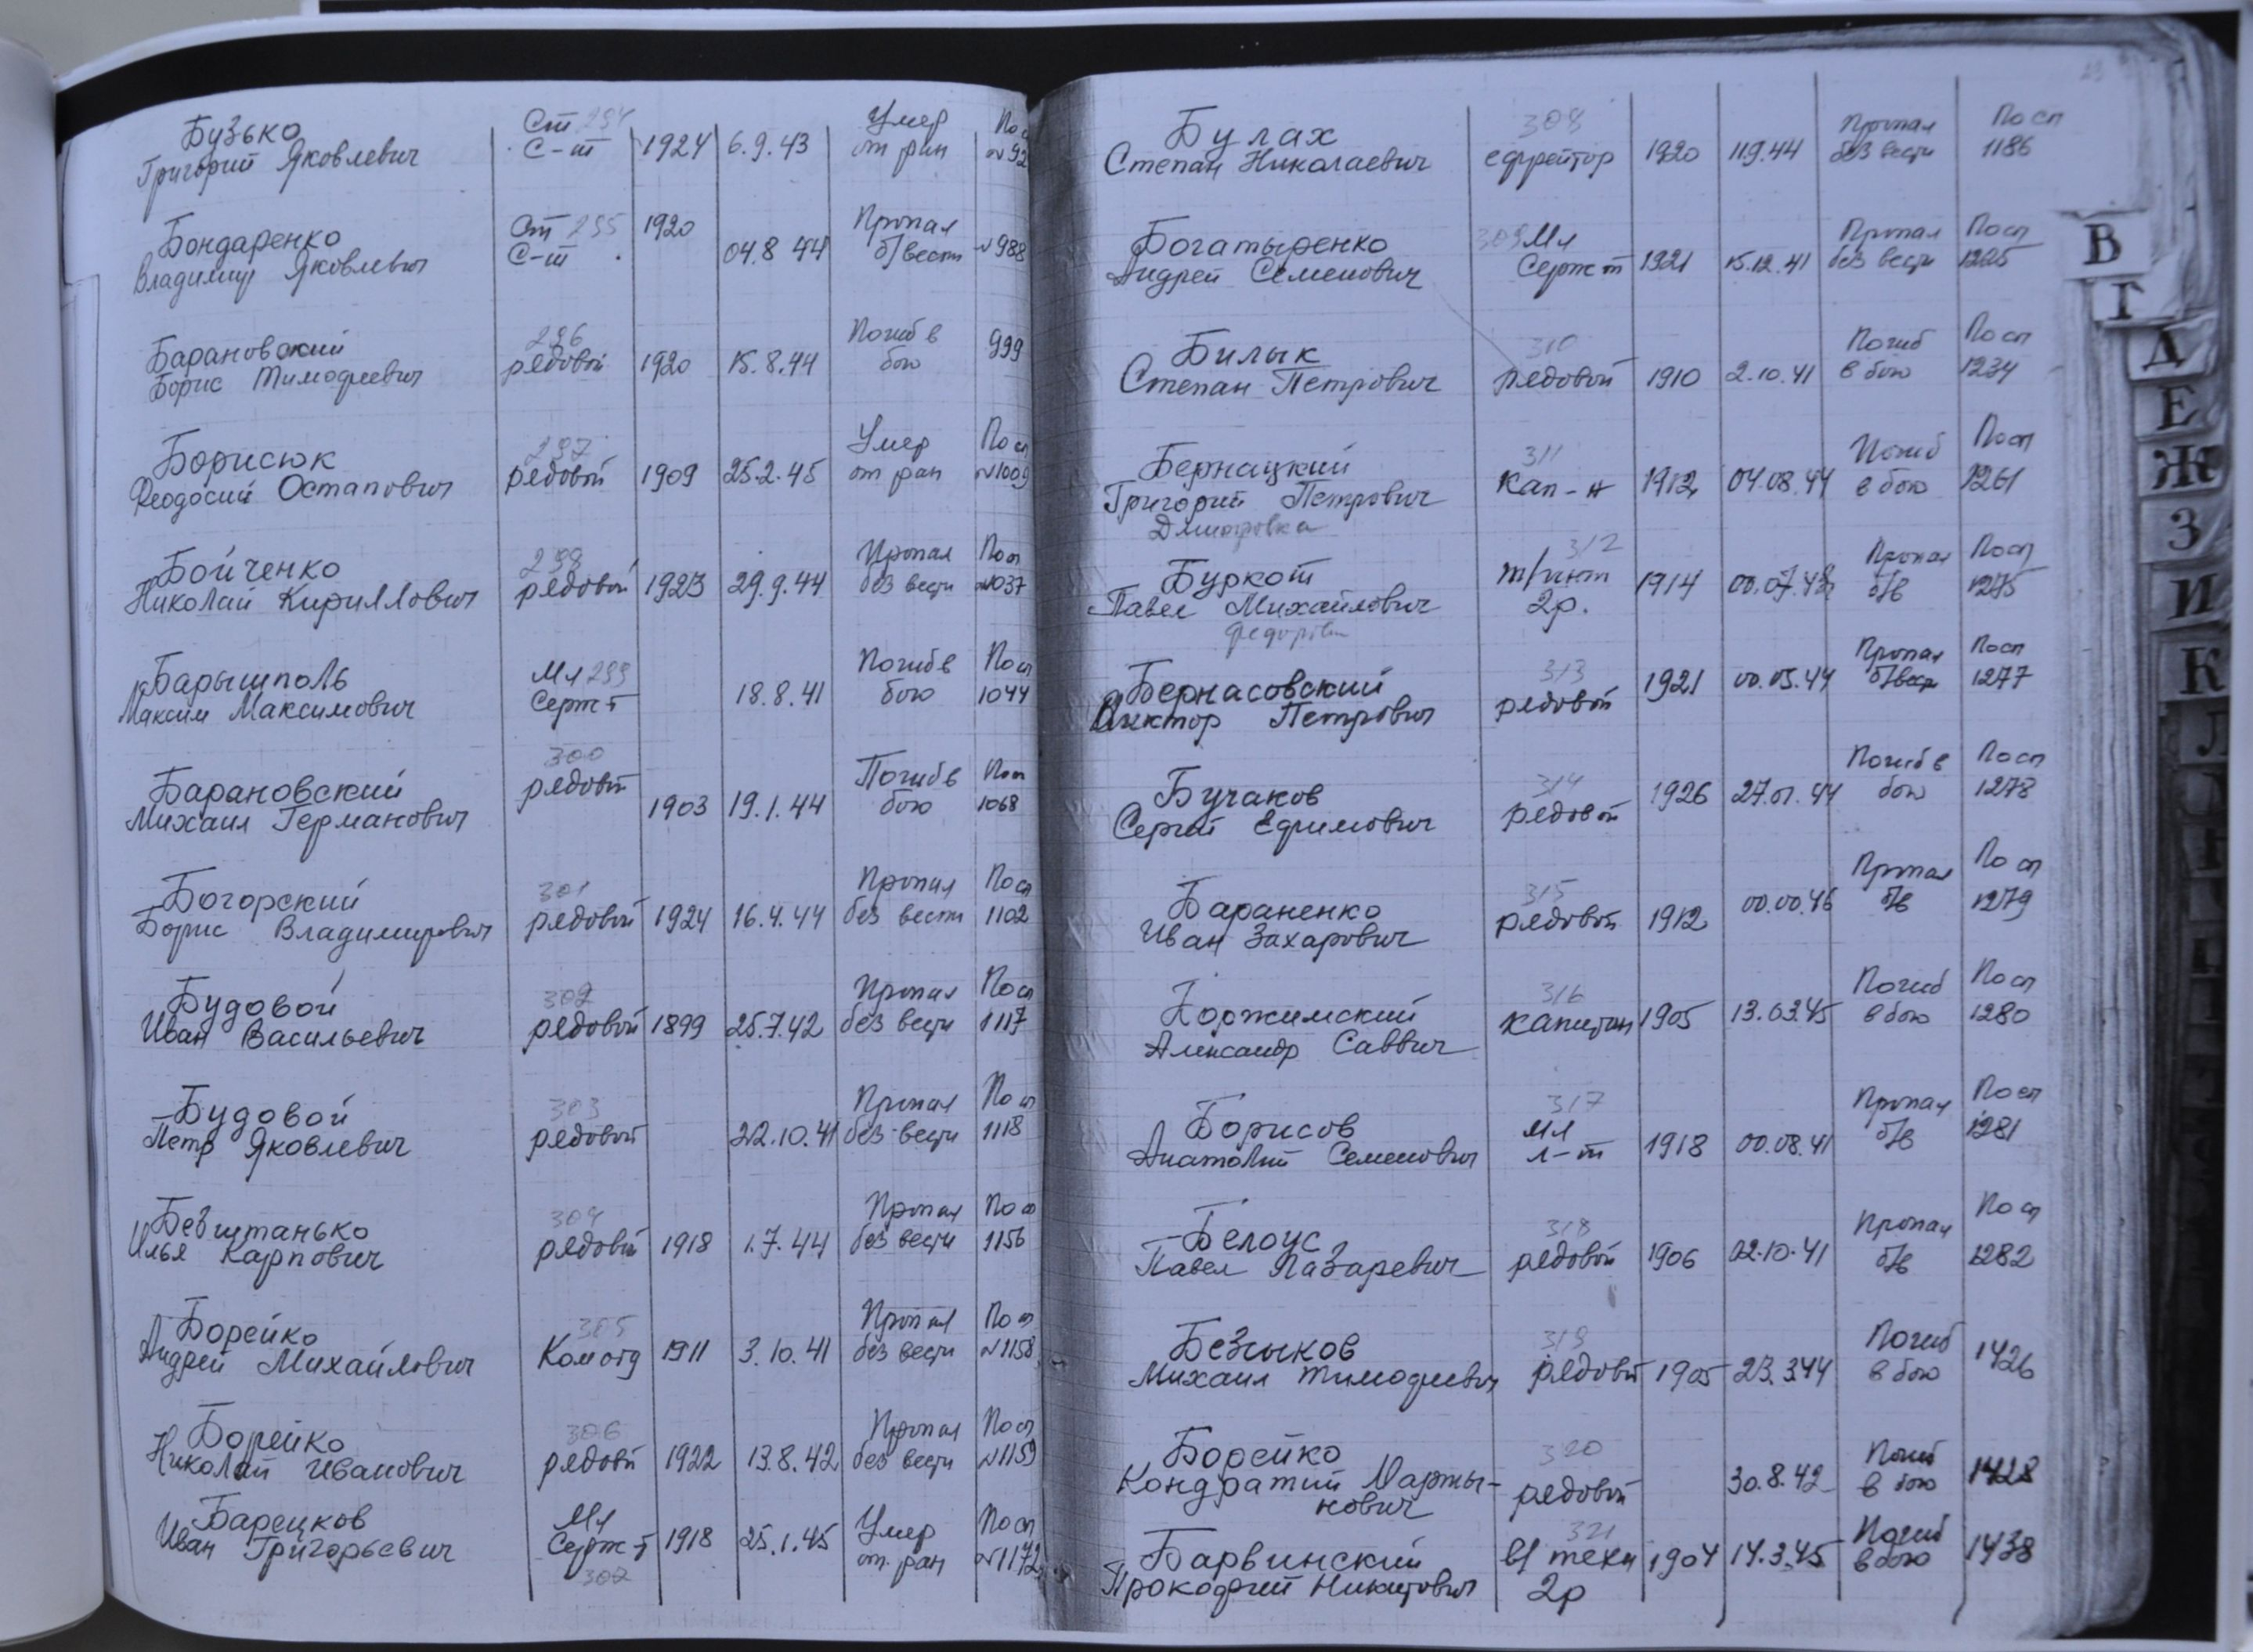 Бузько Ст 294 Умер По сп
Григорий Яковлевич С-т 1924 6.9.43 от ран №92
Бондаренко Ст 295 1920 Пропал
Владимир Яковлевич С-т 04.8 44 б/вести №988
Барановский 296 Погиб в 999
Борис Тимофеевич рядовой 1920 15.8.44 бою
Борисюк 297 Умер По сп
Феодосий Остапович рядовой 1909 25.2.45 от ран №1009
Бойченко 298 Пропал По сп
Николай Кириллович рядовой 1923 29.9.44 без вести №1037
Барышполь Мл 299 Погиб в По сп
Максим Максимович Серж-т 18.8.41 бою 1044
Барановский 300 Погиб в По сп
Михаил Германович рядовой 1903 19.1.44 бою 1068
Богорский 301 Пропал По сп
Борис Владимирович рядовой 1924 16.4.44 без вести 1102
Будовой 302 Пропал По сп
Иван Васильевич рядовой 1899 25.7.42 без вести 1117
Будовой 303 Пропал По сп
Петр Яковлевич рядовой 22.10.41 без вести 1118
Безштанько 304 Пропал По сп
Илья Карпович рядовой 1918 1.7.44 без вести 1156
Борейко 305 Пропал По сп
Андрей Михайлович Ком отд 1911 3.10.41 без вести №1158
Борейко 306 Пропал По сп
Николай Иванович рядовой 1922 13.8.42 без вести №1159
Барецков Мл Умер По сп
Иван Григорьевич Серж-т 1918 25.1.45 от ран №1172
302
Булах 308 Пропал По сп
Степан Николаевич ефрейтор 1920 11.9.44 без вести 1186
Богатыренко 309 Мл Пропал По сп
Андрей Семенович Серж т 1921 15.12.41 без вести 1225
Билык 310 Погиб По сп
Степан Петрович рядовой 1910 2.10.41 в бою 1234
Бернацкий 311 Погиб По сп
Григорий Петрович Кап-н 1912 04.08.44 в бою 1261
Дмитровка
Буркот 312 т/инт Пропал По сп
Павел Михайлович 2р. 1914 00.07.43 б/в 1275
Бернасовский 313 Пропал По сп
Виктор Петрович рядовой 1921 00.05.44 б/вести 1277
Бучаков 314 Погиб в По сп
Сергей Ефимович рядовой 1926 27.01.44 бою 1278
Бараненко 315 Пропал По сп
Иван Захарович рядовой 1912 00.00.46 б/в 1279
Коржимский 316 Погиб По сп
Александр Саввич капитан 1905 13.03.45 в бою 1280
Борисов 317 Мл Пропал По сп
Анатолий Семенович л-т 1918 00.08.41 б/в 1281
Белоус 318 Пропал По сп
Павел Лазаревич рядовой 1906 02.10.41 б/в 1282
Безыков 319 Погиб
Михаил Тимофеевич рядовой 1905 23.3.44 в бою 1426
Борейко 320 Погиб
Кондратий Марты- рядовой 30.8.42 в бою 1428
нович
Барвинский 321 в/техн Погиб
Прокофий Никитович 2р 1904 14.3.45 в бою 1438
В
Г
Д
Е
Ж
З
И
К
Л